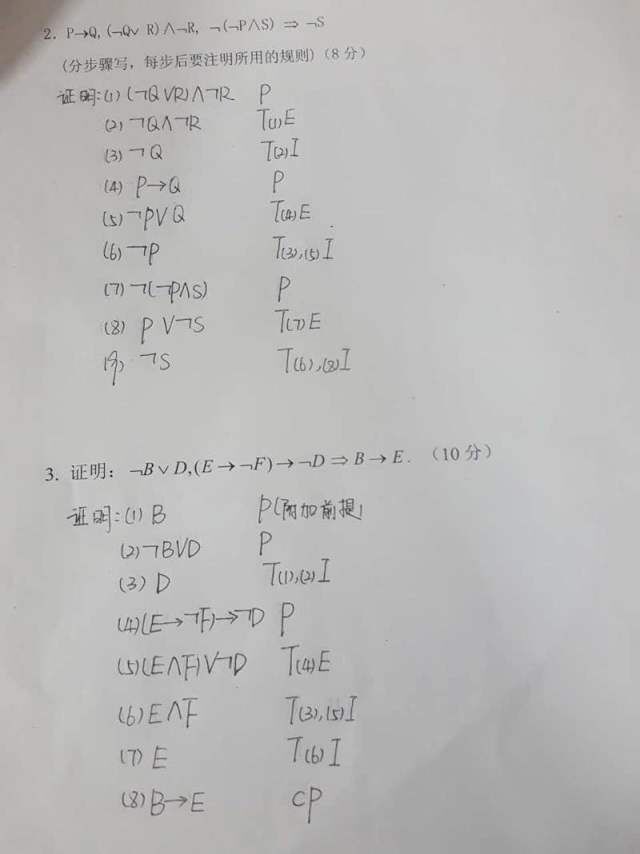 2. P→Q, (¬Q∨ R)∧¬R, ¬(¬P∧S) ⇒ ¬S
(分步骤写，每步后要注明所用的规则)（8 分）
证明:(1) (¬Q∨R)∧¬R P
(2) ¬Q∧¬R T(1)E
(3) ¬Q T(2)I
(4) P→Q P
(5) ¬P∨Q T(4)E
(6) ¬P T(3),(5)I
(7) ¬(¬P∧S) P
(8) P∨¬S T(7)E
(9) ¬S T(6),(8)I
3. 证明：¬B∨D,(E→¬F)→¬D⇒B→E. （10 分）
证明:(1) B P(附加前提)
(2) ¬B∨D P
(3) D T(1),(2)I
(4)(E→¬F)→¬D P
(5)(E∧F)∨¬D T(4)E
(6) E∧F T(3),(5)I
(7) E T(6)I
(8) B→E CP